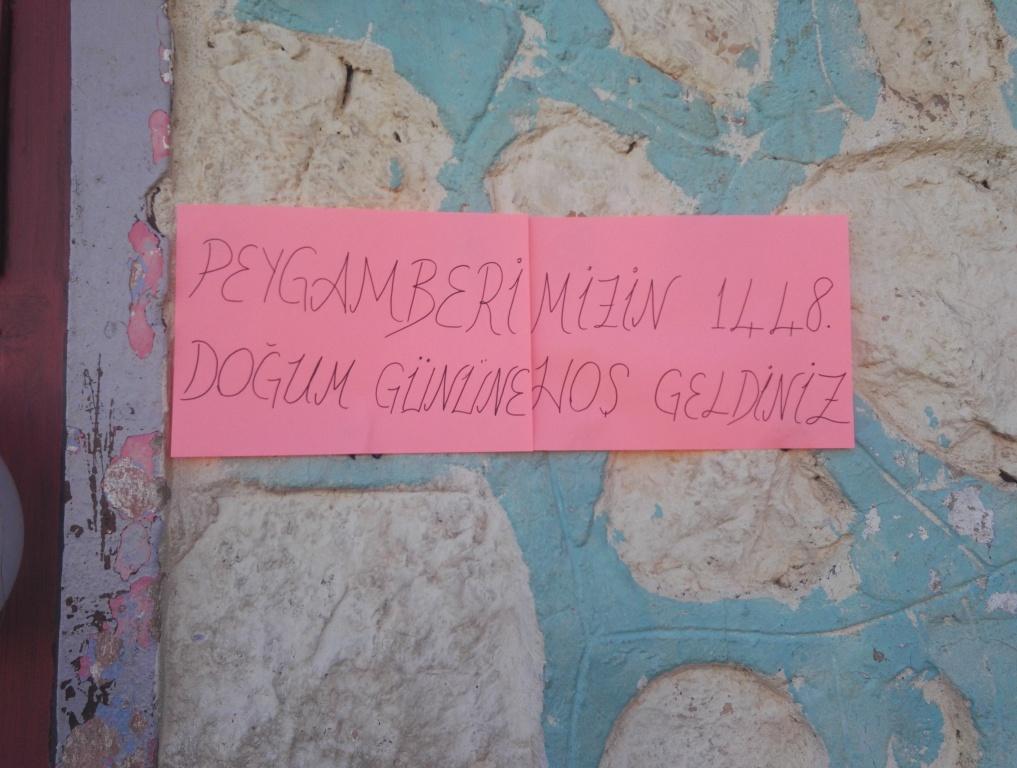 PEYGAMBERİMİZİN 1448.
DOĞUM GÜNÜNE HOŞ GELDİNİZ